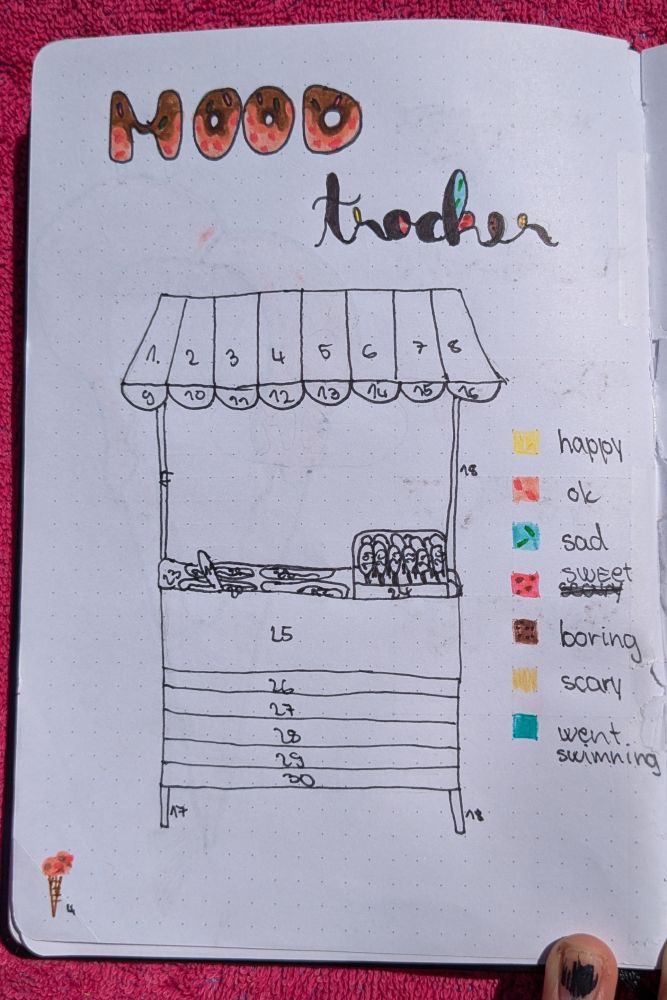 MOOD
tracker
1. 2 3 4 5 6 7 8
9 10 11 12 13 14 15 16
18
24
25
26
27
28
29
30
17 18
happy
ok
sad
sweet
boring
scary
went
swimming
4